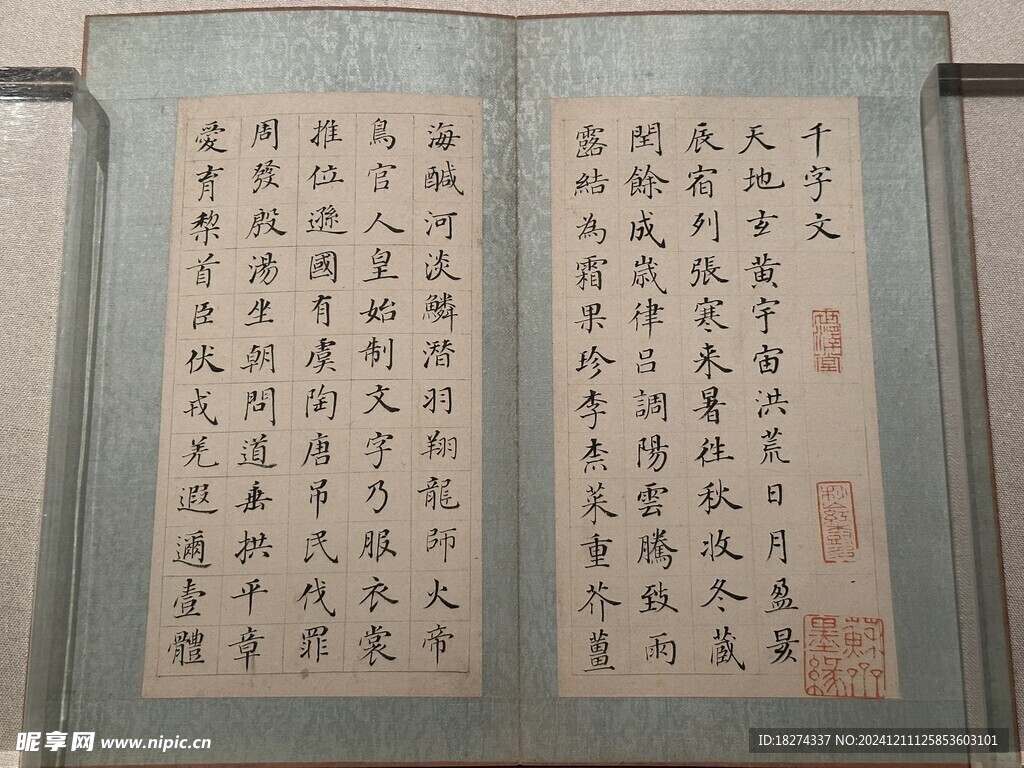 千字文
天地玄黃宇宙洪荒日月盈昃
辰宿列張寒来暑往秋收冬藏
閏餘成歳律呂調陽雲騰致雨
露結為霜果珍李柰菜重芥薑
海鹹河淡鱗潛羽翔龍師火帝
鳥官人皇始制文字乃服衣裳
推位遜國有虞陶唐吊民伐罪
周發殷湯坐朝問道垂拱平章
愛育黎首臣伏戎羌遐邇壹體
昵享网 www.nipic.cn
ID:18274337 NO:20241211125853603101